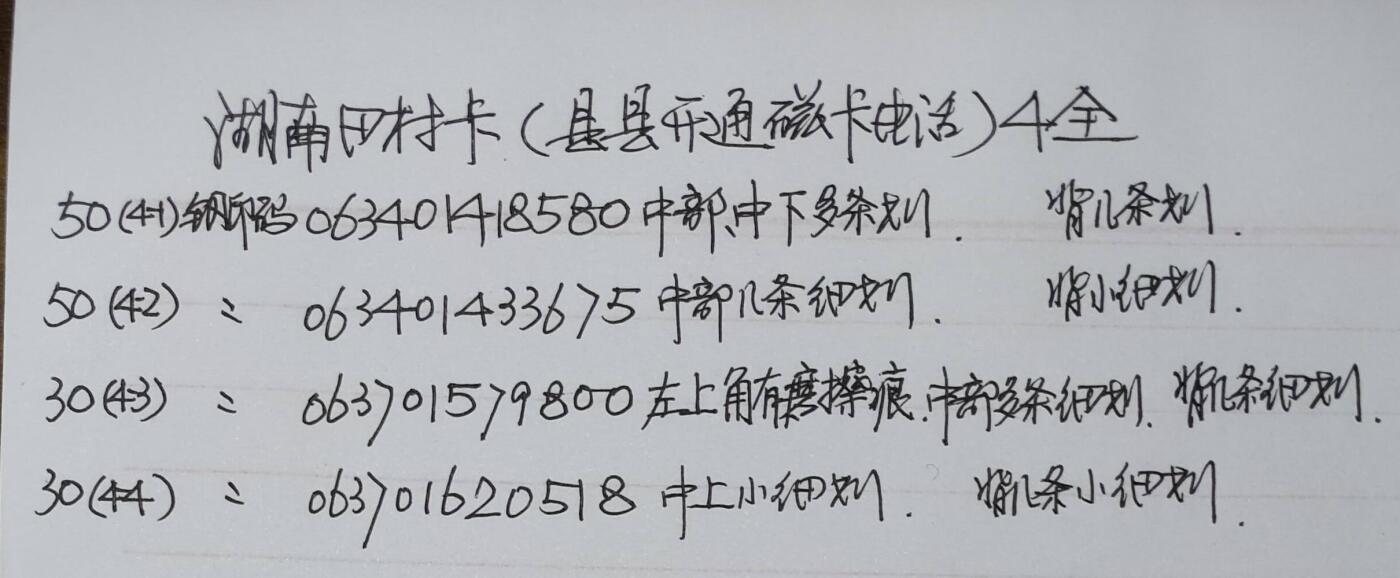 湖南田村卡(县县开通磁卡电话)4全
50(4-1)钢印码063401418580中部、中下多条划. 背几条划.
50(4-2) 〃 063401433675中部几条细划. 背小细划.
30(4-3) 〃 063701579800左上角有磨擦痕.中部多条细划. 背几条细划.
30(4-4) 〃 063701620518中上小细划. 背几条小细划.